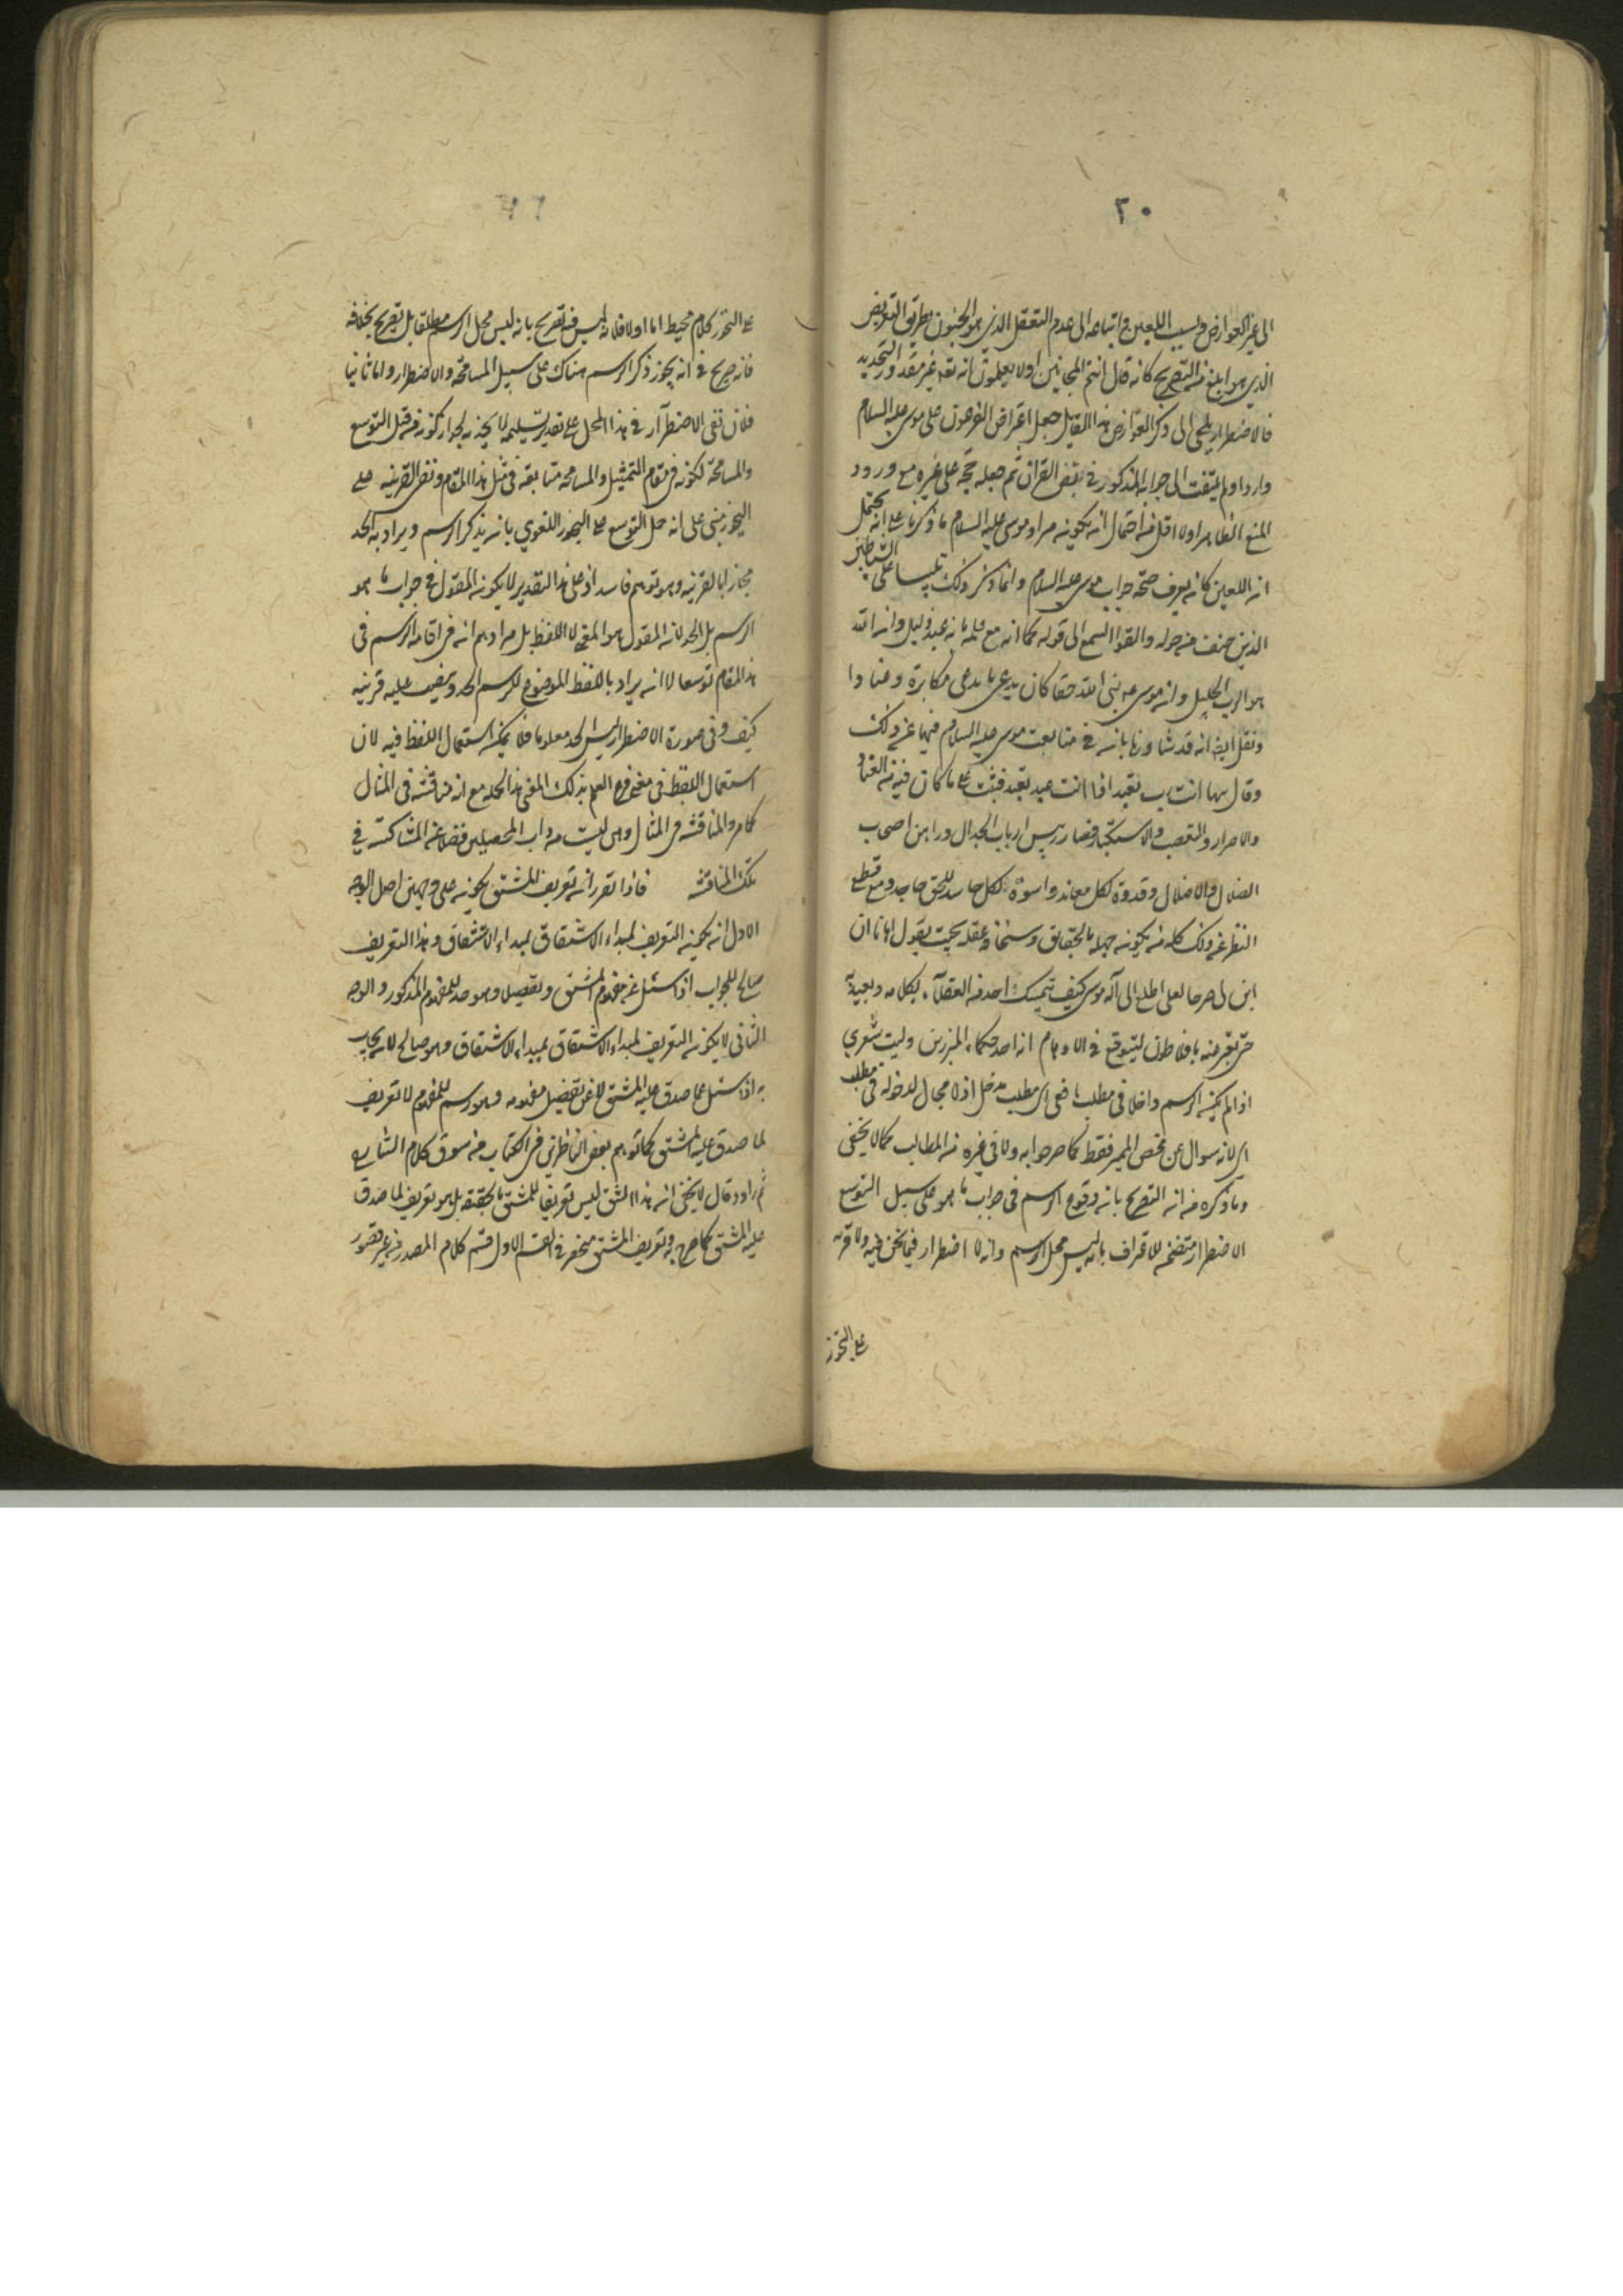 ٢٠
الى غير العوارض ونسب اللعين مع اتباعه الى عدم التعقل الذي هو الجنون بطريق التعريض
الذي هو ابلغ من التصريح كانه قال انتم المجانين اولا يعلمون انه تعالى غير مقدور التحديد
فالاضطرار يلجى الى ذكر العوارض هذا القايل جعل اعتراض الفرعون على موسى عليه السلام
واردا ولم يلتفت الى جوابه المذكور في نص القران ثم جعله حجة على غيره مع ورود
المنع الظاهر اولا اقل من احتمال ان يكون مراد موسى عليه السلام ما ذكرنا على انه يحتمل
ان اللعين كان يعرف صحة جواب موسى عليه السلام وانما ذكر ذلك تلبيسا على الشياطين
الذين صنف من حوله والقوا السمع الى قوله كما انه مع علمه بانه عبد ذليل وان الله
هو الرب الجليل وان موسى عم نبى الله حقا كان يدعى ما يدعى مكابرة وعنادا
ونقل ايضا انه قد شاور هامان في متابعة موسى عليه السلام فنهاه عن ذلك
وقال بينما انت رب تعبد اذا انت عبد تعبد فثبت على ما كان فيه من العناد
والاصرار والتعصب والاستكبار فصار رئيس ارباب الجدال وراس اصحاب
الضلال والاضلال وقدوة لكل معاند واسوة لكل حاسد للحق جاحد ومع قطع
النظر عن ذلك كله من يكون جهله بالحقايق وسخافة عقله بحيث يقول لهامان
ابن لى صرحا لعلى اطلع الى اله موسى كيف يتمسك احد من العقلاء بكلامه
اذا لم يكن الرسم داخلا في مطلب ما ففى اى مطلب يدخل اذ لا مجال لدخوله في مطلب
اى لانه سوال عن محض المميز فقط كما صرحوا به ولا في غيره من المطالب كما لا يخفى
وما ذكره من ان التصريح بان وقوع الرسم في جواب ما هو على سبيل التوسع
الاضطرار متضمن للاعتراف بانه ليس محل الرسم وانه لا اضطرار فيما نحن فيه ولا قرينة
على التجوز
على التجوز كلام مخيط اما اولا فلانه ليس فيه تصريح بانه ليس محل الرسم مطلقا بل تصريح بخلافه
فانه صريح في انه يجوز ذكر الرسم هناك على سبيل المسامحة والاضطرار واما ثانيا
فلان نفى الاضطرار في هذا المحل على تقدير تسليمه لا يجديه لجواز كونه من قبيل التوسع
والمسامحة لكونه في مقام التمثيل والمسامحة متابعة في مثل هذا المقام ونفى القرينة على
التجوز مبنى على انه حمل التوسع على التجوز اللغوي بان يذكر الرسم ويراد به الحد
مجازا بالقرينة وهو توهم فاسد اذ على هذا التقدير لا يكون المقول في جواب ما هو
الرسم بل الحد لان المقول هو المعنى لا اللفظ بل مرادهم انه في اقامة الرسم في
هذا المقام توسعا لا انه يراد باللفظ الموضوع للرسم الحد وينصب عليه قرينة
كيف وفى صورة الاضطرار ليس الحد معلوما فلا يمكن استعمال اللفظ فيه لان
استعمال اللفظ في معنى فرع العلم بذلك المعنى هذا كله مع انه مناقشة في المثال
كما مر والمناقشة في المثال وهى ليست من داب المحصلين فضلا عن المشاركة في
تلك المناقشة فاذا تقرر ان تعريف المشتق يكون على وجهين اصل الوجه
الاول ان يكون التعريف لمبداء الاشتقاق بمبداء الاشتقاق وهذا التعريف
صالح للجواب اذا سئل عن مفهوم المشتق وتفصيله وهو حد للمفهوم المذكور والوجه
الثانى لا يكون التعريف لمبداء الاشتقاق بمبداء الاشتقاق وهو صالح لان يجاب
به اذا سئل عما صدق عليه المشتق لا عن تفصيل مفهومه وهو رسم للمفهوم لا تعريف
لما صدق عليه المشتق كما توهم بعض الناظرين في الكتاب من سوق كلام الشارح
ثم زاد وقال لا يخفى ان هذا الشق ليس تعريفا للمشتق بالحقيقة بل هو تعريف لما صدق
عليه المشتق كما صرح به وتعريف المشتق منحصر في القسم الاول